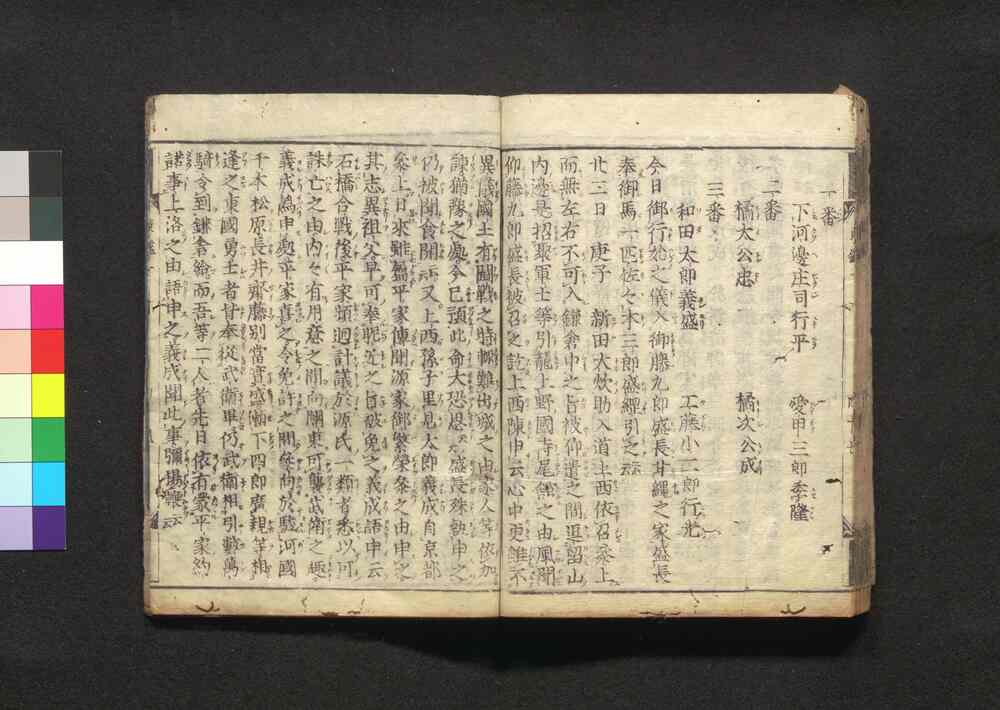 一番
下河邊庄司行平　愛甲三郎季隆
二番
橘太公忠　橘次公成
三番
和田太郎義盛　工藤小二郎行光
今日御行始之儀入御藤九郎盛長甘繩之家盛長
奉御馬一匹佐々木三郎盛綱引之云云
廿二日　庚子　新田大炊助入道上西依召參上
而無左右不可入鎌倉中之旨被仰遣之間逗留山
内邊是招聚軍士等引籠上野國寺尾舘之由風聞
仰藤九郎盛長被召之訖上西陳申云心中更雖不
異儀國土有鬪戰之時輙難出城之由家人等依加
諫猶豫之處今已預此命大恐恩云云盛長殊執申之
仍被聞食開云云又上西孫子里見太郎義成自京都
參上日來雖屬平家傳聞源家御繁榮參之由申之
其志異祖父早可奉昵近之旨被免之義成語申云
石橋合戰後平家頻廻計議於源氏一類者悉以可
誅亡之由内々有用意之間向關東可襲武衛之趣
義成僞申處平家喜之令免許之間參向於駿河國
千本松原長井齋藤別當實盛瀬下四郎廣親等相
逢之東國勇士者甘奉從武衛畢仍武衛相引數萬
騎令到鎌倉給而吾等二人者先日依有蒙平家約
諾事上洛之由語申之義成聞此事彌揚鞭云云